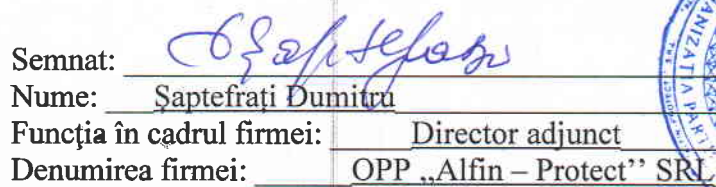 Semnat: Șaptefrați
Nume: Șaptefrați Dumitru
Funcția în cadrul firmei: Director adjunct
Denumirea firmei: OPP „Alfin – Protect’’ SRL